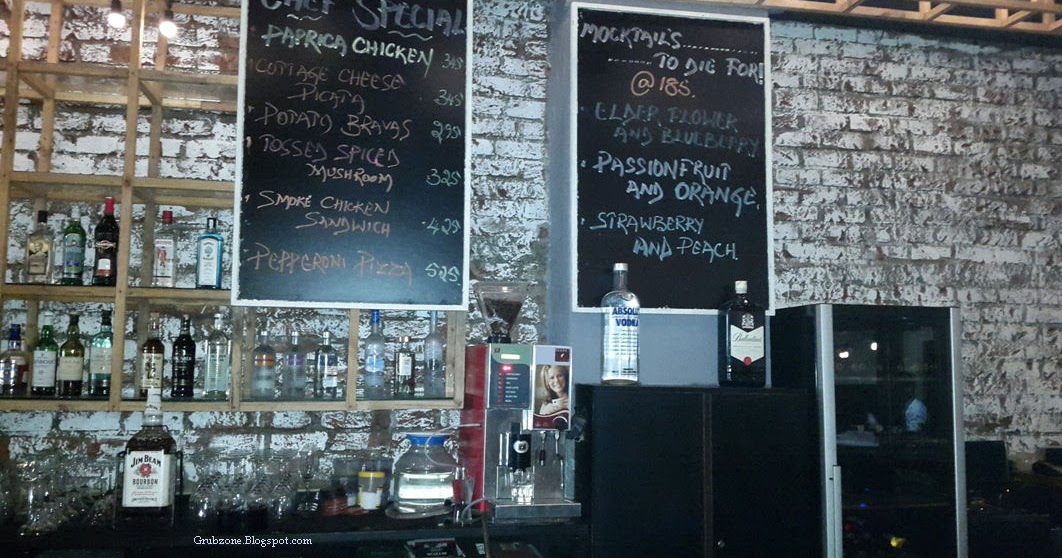 CHEF SPECIAL
PAPRICA CHICKEN 345
COTTAGE CHEESE
PICATA 345
POTATO BRAVAS 295
TOSSED SPICED
MUSHROOM 325
SMOKE CHICKEN
SANDWICH 425
PEPPERONI PIZZA 525
MOCKTAILS..........
.......TO DIG FOR!
@ 185.
ELDER FLOWER
AND BLUEBERRY
PASSIONFRUIT
AND ORANGE
STRAWBERRY
AND PEACH
ABSOLUT
VODKA
Ballantine's
JIM BEAM
BOURBON
Grubzone.Blogspot.com